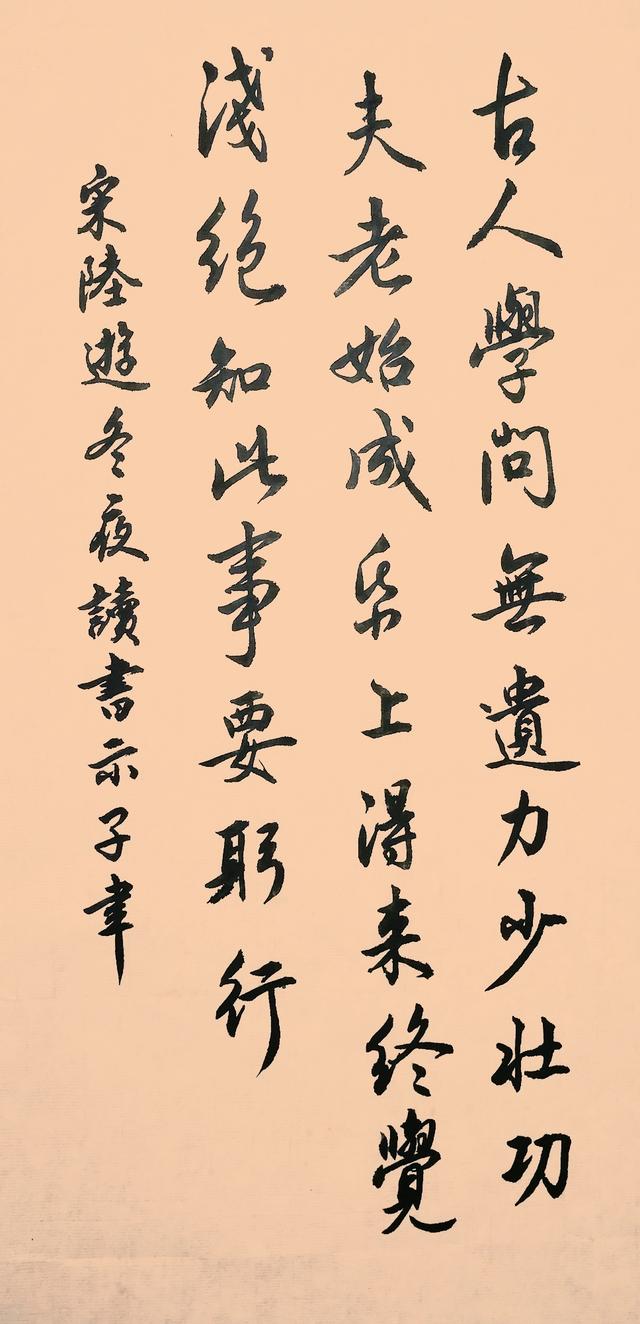 古人學問無遺力少壮功
夫老始成帋上得来終覺
淺絶知此事要躬行
宋陸遊冬夜讀書示子聿